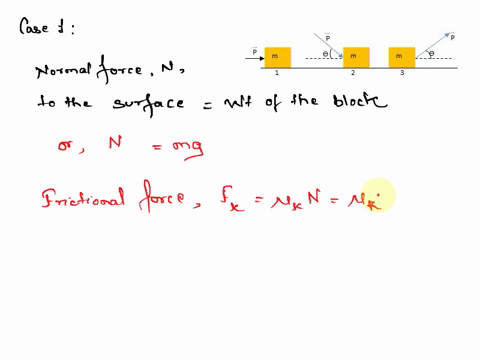 Case 1:
P P P
θ m m m θ
1 2 3
Normal force, N,
to the surface = wt of the block
or, N = mg
Frictional force, fₖ = μₖ N = μₖ